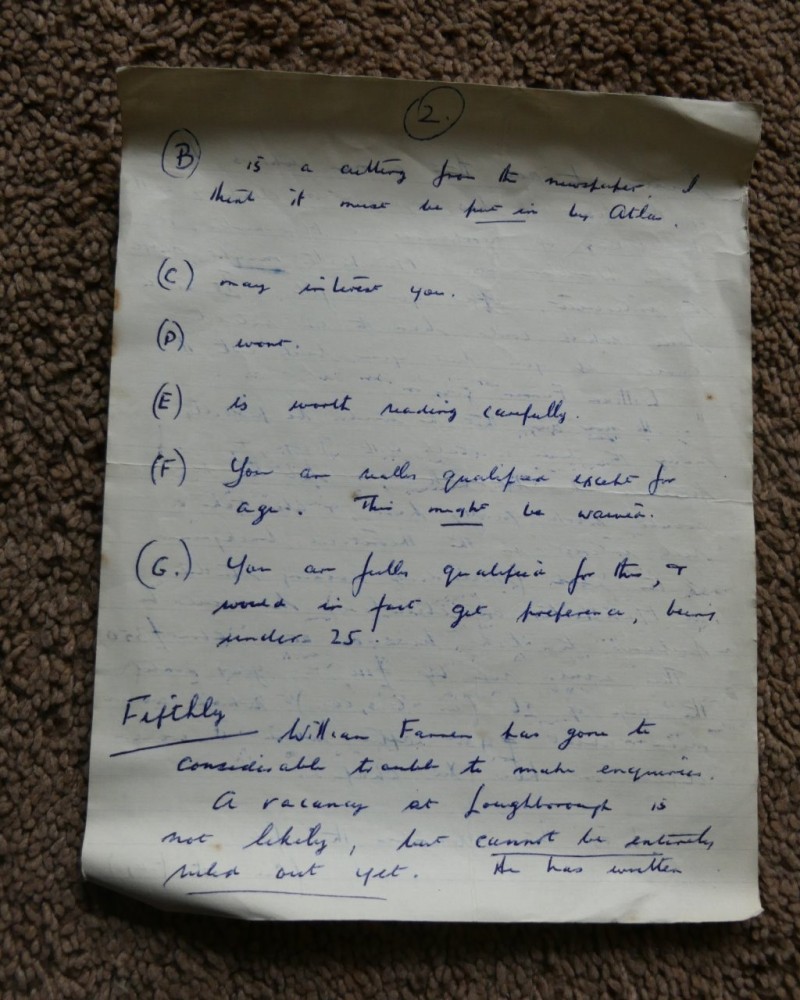 2.
(B) is a cutting from the newspaper. I
think it must be put in by Atlas.
(C) may interest you.
(D) wont.
(E) is worth reading carefully.
(F) You are really qualified except for
age. This might be waived.
(G.) You are fully qualified for this, &
would in fact get preference, being
under 25.
Fifthly William has gone to
considerable trouble to make enquiries.
A vacancy at Loughborough is
not likely, but cannot be entirely
ruled out yet. He has written